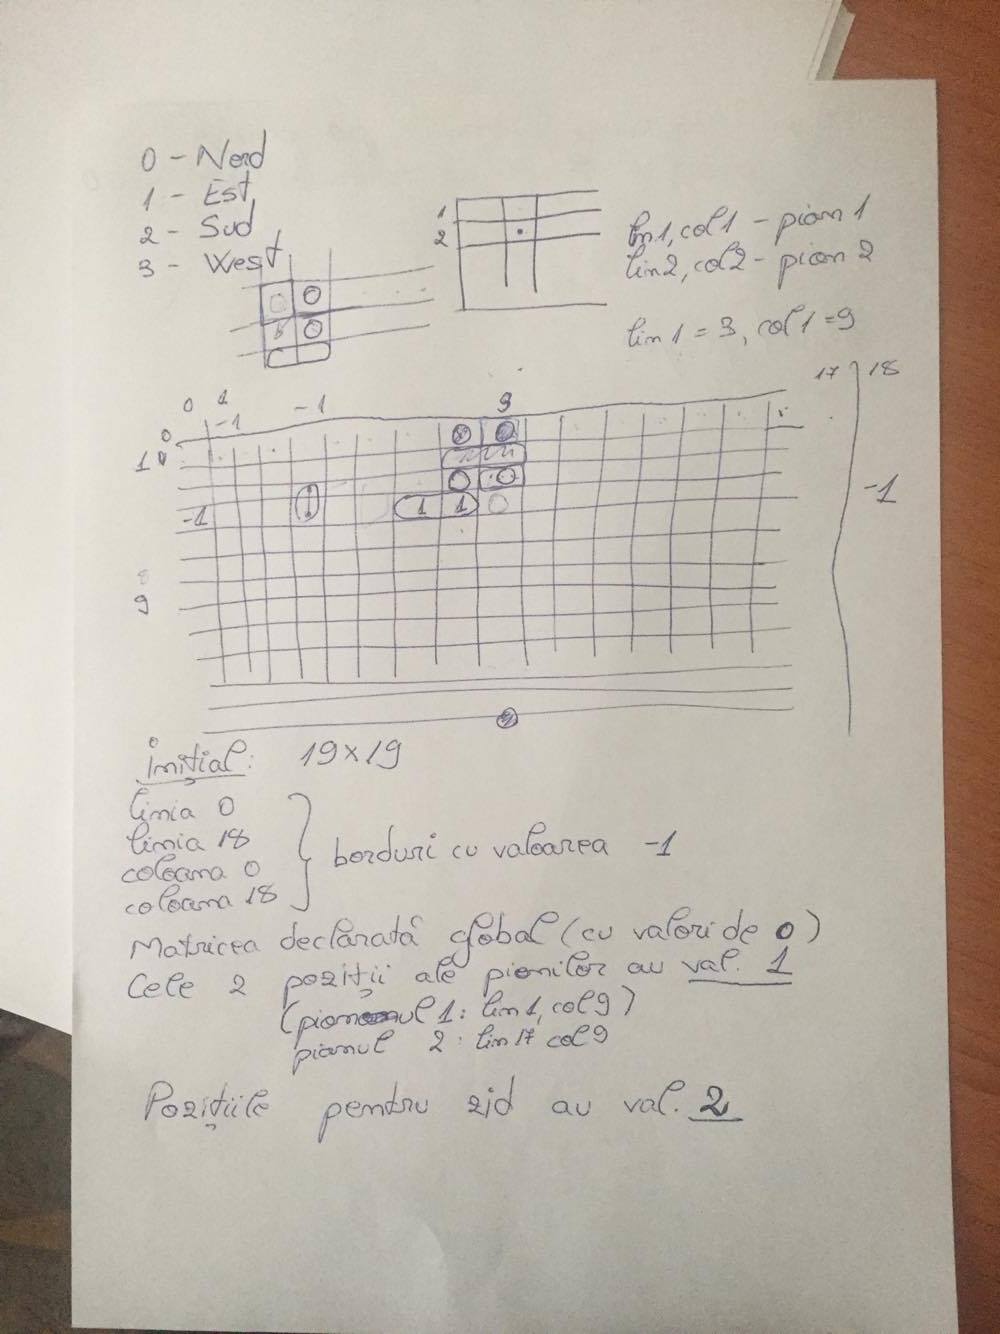 0 - Nord
1 - Est
2 - Sud
3 - West
1
2
lin1, col1 - pion 1
lin2, col2 - pion 2
lin 1 = 3, col 1 = 9
17 18
0 1 -1 9
-1
0
1
1 1 1
-1 -1
8
9
Inițial: 19x19
linia 0
linia 18
coloana 0
coloana 18
borduri cu valoarea -1
Matricea declarată global (cu valori de 0)
Cele 2 poziții ale pionilor au val. 1
(pionul 1: lin1, col9)
pionul 2: lin 17 col 9
Pozițiile pentru zid au val. 2